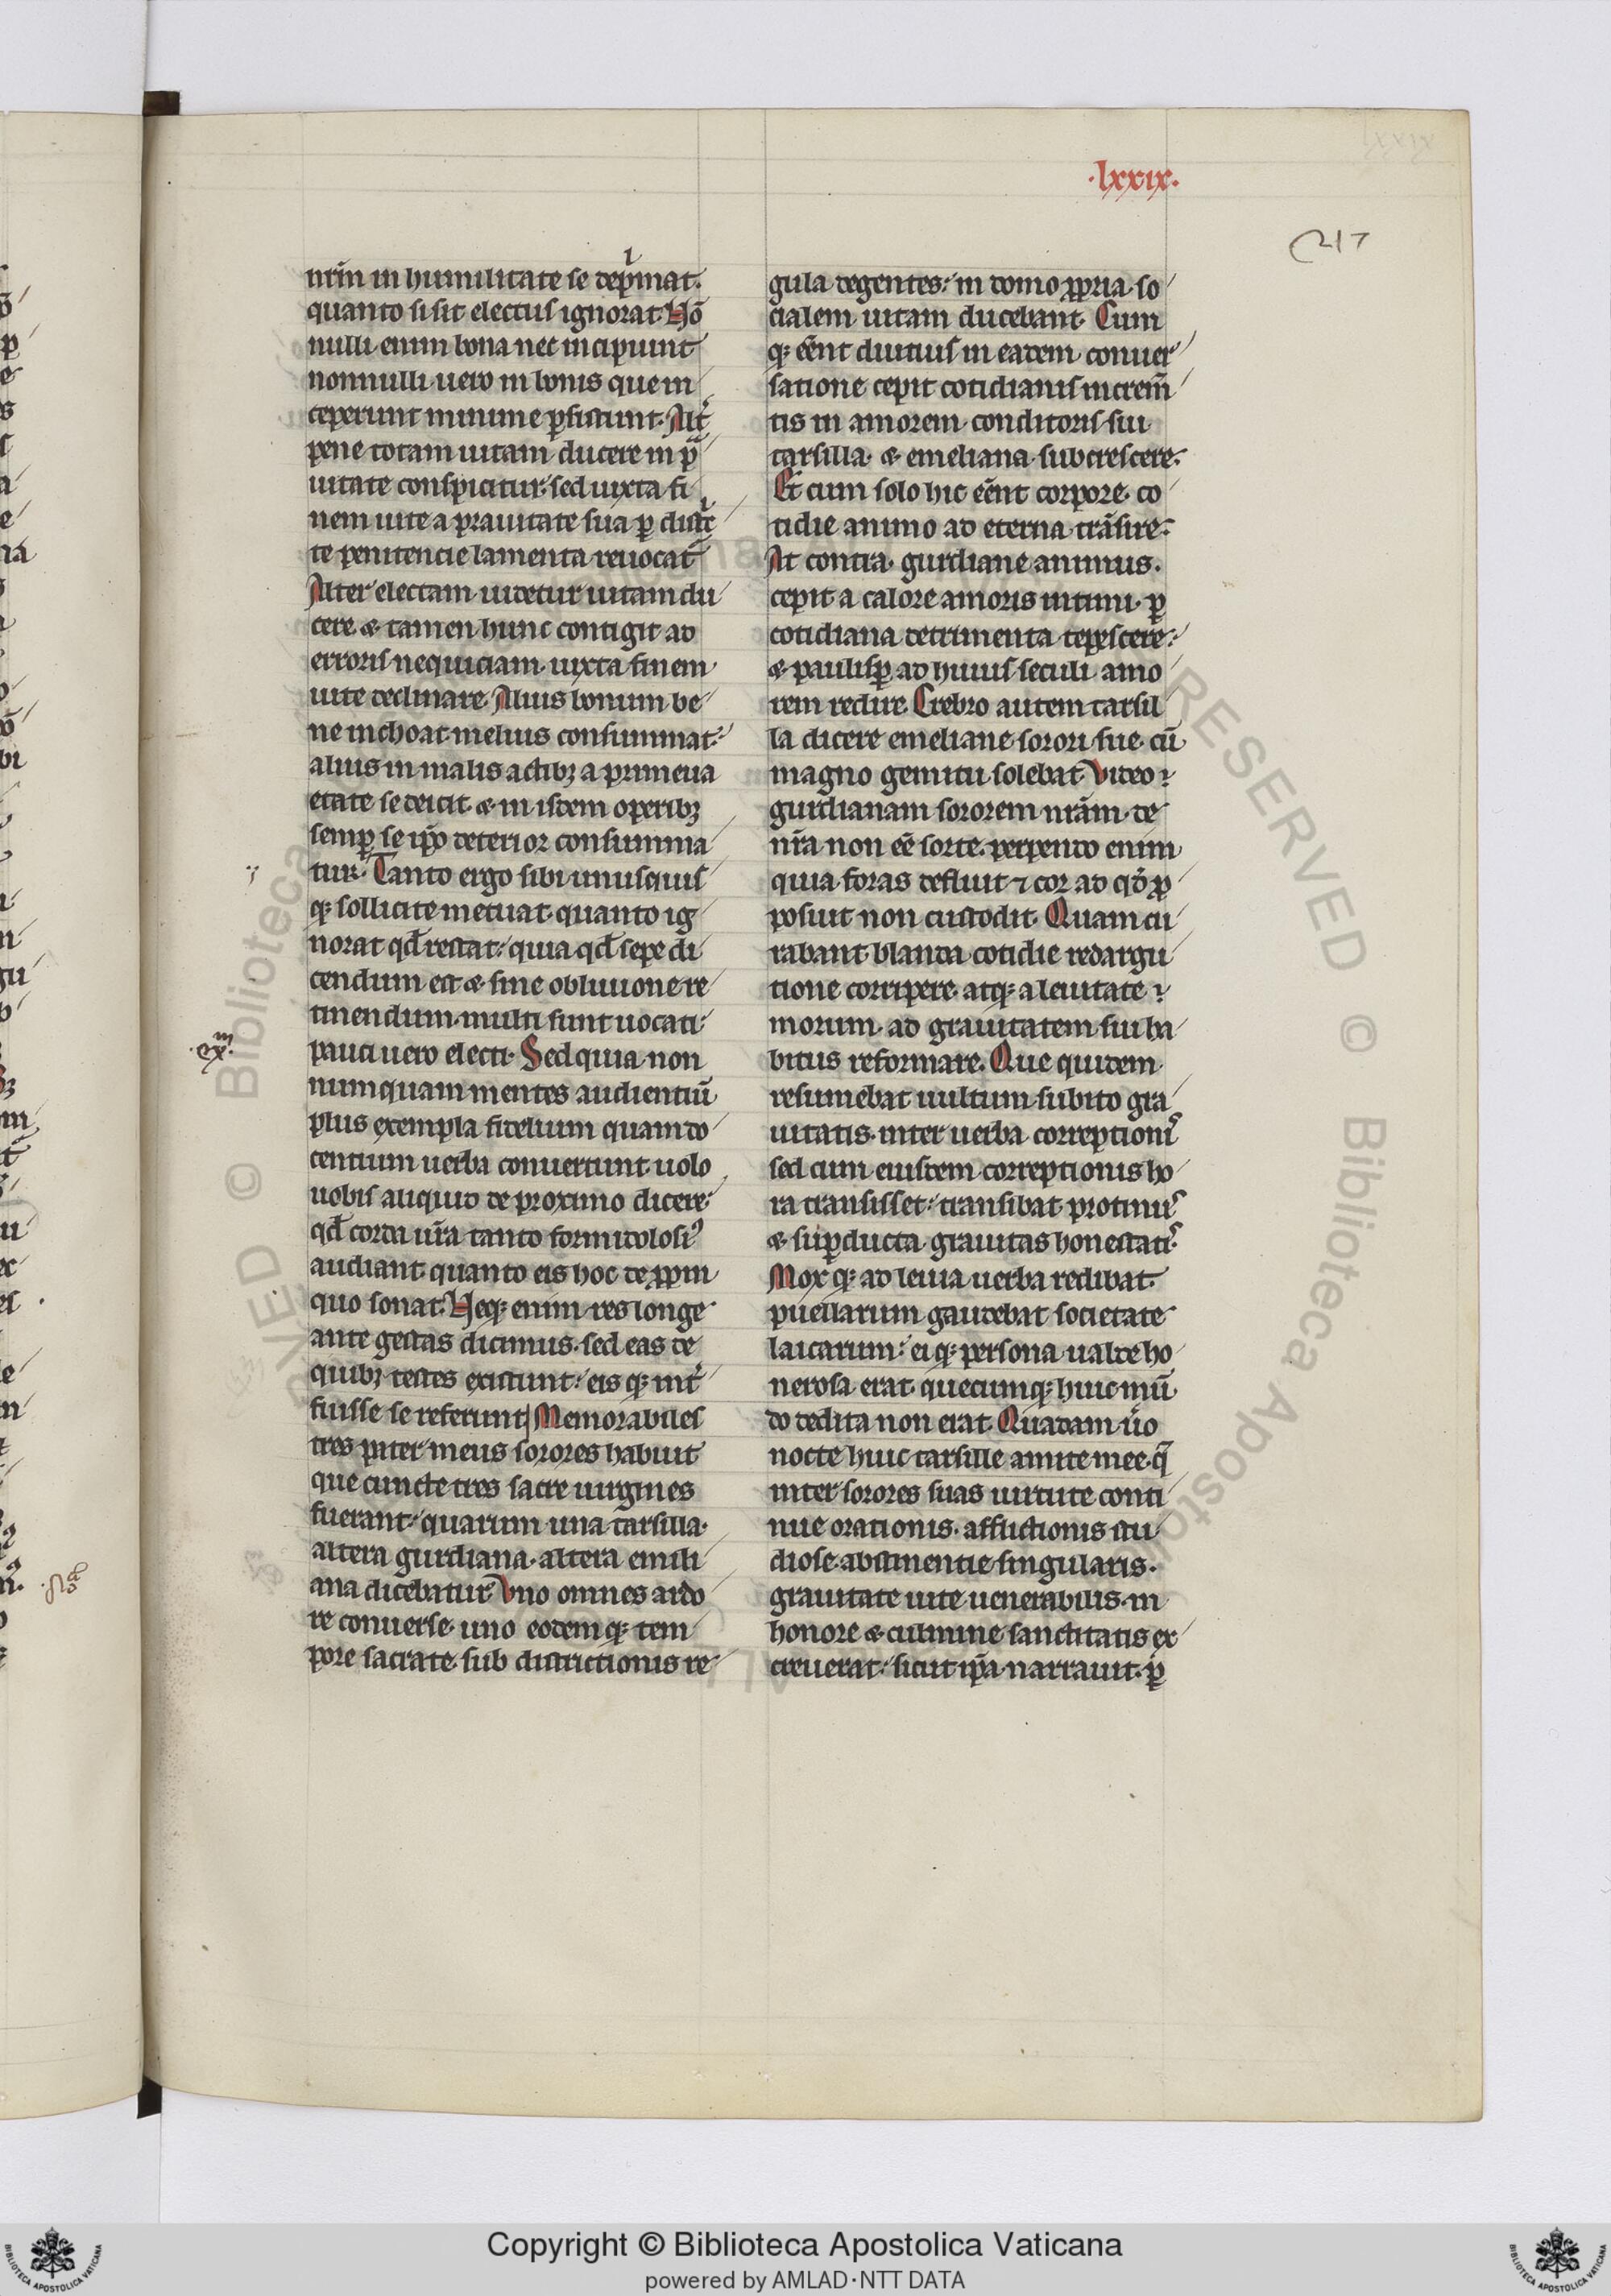 ·lxxix·
217
nr̄m in humilitate se dep̱imat.
quanto si sit electus ignorat. Nō
nulli enim bona nec incipiunt
nonnulli uero in bonis que in
ceperunt minime ꝓficiunt. Alt̄
pene totam uitam ducere in p̄
uitate conspicitur. sed iuxta fi
nem uite a prauitate sua ꝑ dist̄c
te penitencie lamenta reuocat̄
Alter electam uidetur uitam du
cere. ⁊ tamen hunc contigit ad
erroris nequiciam iuxta finem
uite declinare. Alius bonum be
ne inchoat melius consummat.
alius in malis actibꝫ a primeua
etate se deicit. ⁊ in isdem operibꝫ
semꝑ se ip̄o deterior consumma
tur. Tanto ergo sibi unusquis
qꝫ sollicite metuat. quanto ig
norat qd̄ restat. quia qd̄ sepe di
cendum est ⁊ sine obliuione re
tinendum. multi sunt uocati.
pauci uero electi. Sed quia non
numquam mentes audientiū
plus exempla fidelium quam do
centium uerba conuertunt uolo
uobis aliquid de proximo dicere.
qd̄ corda ur̄a tanto formidolosiꝰ
audiant quanto eis hoc de ꝓpin
quo sonat. Neqꝫ enim res longe
ante gestas dicimus. sed eas de
quibꝫ testes existunt. eis qꝫ int̄
fuisse se referunt Memorabiles
tres pater meus sorores habuit
que cuncte tres sacre uirgines
fuerant. quarum una tarsilla.
altera gurdiana. altera emili
ana dicebatur Vno omnes ardo
re conuerse. uno eodemqꝫ tem
pore sacrate. sub districtionis re
gula degentes. in domo ꝓpria so
cialem uitam ducebant. Cum
qꝫ eēnt diutius in eadem conuer
satione cepit cotidianis increm̄
tis in amorem conditoris sui
tarsilla. ⁊ emeliana subcrescere.
Et cum solo hic eēnt corpore. co
tidie animo ad eterna trāsire.
At contra. gurdiane animus.
cepit a calore amoris intimi. ꝑ
cotidiana detrimenta tepescere.
⁊ paulisꝑ ad huius seculi amo
rem redire. Crebro autem tarsil
la dicere emeliane sorori sue. cū
magno gemitu solebat. Video
gurdianam sororem nr̄am. de
nr̄a non eē sorte. perpendo enim
quia foras defluit ⁊ cor ad qd̄ ꝓ
posuit non custodit. Quam cu
rabant blanda cotidie redargu
tione corripere. atqꝫ a leuitate
morum. ad grauitatem sui ha
bitus reformare. Que quidem
resumebat uultum subito gra
uitatis. inter uerba correptionis
sed cum eiusdem correptionis ho
ra transisset. transibat protinus
⁊ suꝑducta grauitas honestatis.
Mox qꝫ ad leuia uerba redibat.
puellarum gaudebat societate
laicarum. ei qꝫ persona ualde ho
nerosa erat. quecumqꝫ huic mū
do dedita non erat. Quadam ūo
nocte huic tarsille amite mee. q̄
inter sorores suas uirtute conti
nue orationis. afflictionis stu
diose. abstinentie singularis.
grauitate uite uenerabilis. in
honore ⁊ culmine sanctitatis ex
creuerat. sicut ip̄a narrauit. ꝑ
Copyright © Biblioteca Apostolica Vaticana
powered by AMLAD·NTT DATA